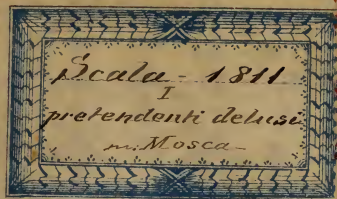 Scala - 1811
I
pretendenti delusi
m. Mosca -